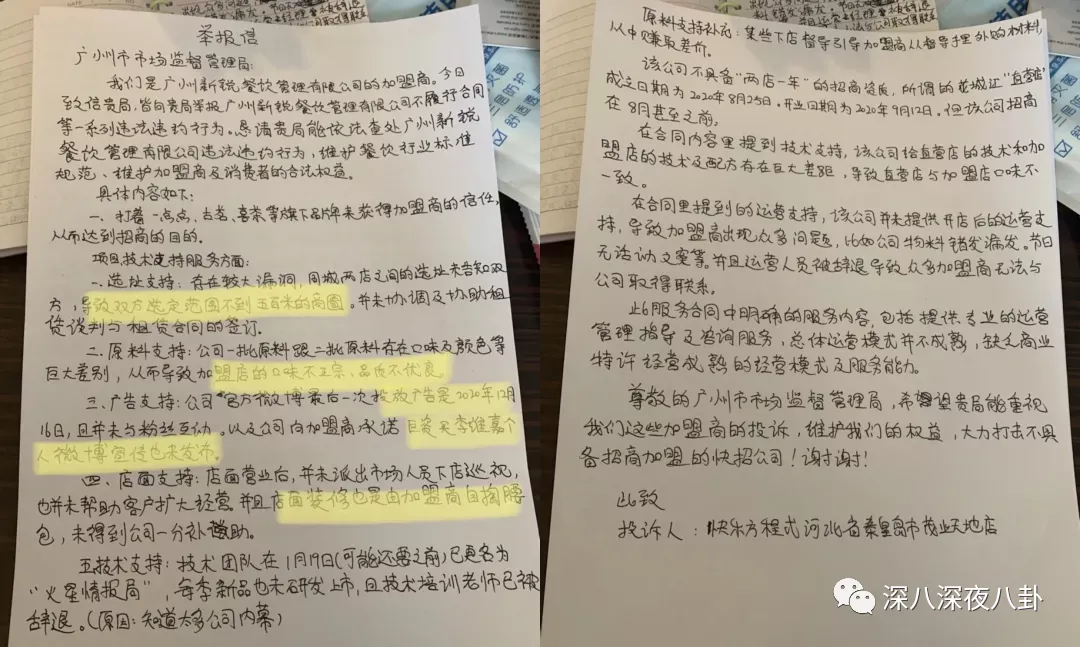 举报信
广州市市场监督管理局:
我们是广州新锐餐饮管理有限公司的加盟商。今日
致信贵局,皆向贵局举报广州新锐餐饮管理有限公司不履行合同
等一系列违法违约行为。恳请贵局能依法查处广州新锐
餐饮管理有限公司违法违约行为,维护餐饮行业标准
规范、维护加盟商及消费者的合法权益。
具体内容如下:
一、打着一点点、古茗、喜茶等旗下品牌来获得加盟商的信任,
从而达到招商的目的。
项目技术支持服务方面:
一.选址支持:存在较大漏洞,同城两店之间的选址未告知双
方,导致双方选定范围不到五百米的商圈。并未协调及协助租
赁谈判与租赁合同的签订。
二.原料支持:公司一批原料跟二批原料存在口味及颜色等
巨大差别,从而导致加盟店的口味不正宗、品质不优良。
三、广告支持:公司"官方微博最后一次投放广告是2020年12月
16日,且并未与粉丝互动。以及公司向加盟商承诺巨资买李维嘉个
人微博宣传也未发布。
四、店面支持:店面营业后,并未派出市场人员下店巡视,
也并未帮助客户扩大经营。并且店面装修也是由加盟商自掏腰
包,未得到公司一分补助。
五技术支持:技术团队在1月19日(可能还要之前)已更名为
"火星情报局",每季新品也未研发上市,且技术培训老师已被
辞退。(原因:知道太多公司内幕)
原料支持补充:某些下店督导引导加盟商从督导手里外购材料,
从中赚取差价。
该公司不具备"两店一年"的招商资质,所谓的花城汇"直营店"
成立日期为2020年8月25日.开业日期为2020年9月12日。但该公司招商
在8月甚至之前。
在合同内容里提到技术支持,该公司给直营店的技术和加
盟店的技术及配方存在巨大差距,导致直营店与加盟店口味不
一致。
在合同里提到的运营支持,该公司并未提供开店后的运营支
持,导致加盟商出现众多问题,比如公司物料错发漏发。节日
无活动文案等。并且运营人员被辞退导致众多加盟商无法与
公司取得联系。
此服务合同中明确的服务内容,包括提供专业的运营
管理指导及咨询服务,总体运营模式并不成熟,缺乏商业
特许经营成熟的经营模式及服务能力。
尊敬的广州市市场监督管理局,希望贵局能重视
我们这些加盟商的投诉,维护我们的权益,大力打击不具
备招商加盟的快招公司!谢谢!
此致
投诉人:快乐方程式河北省秦皇岛市茂业天地店
深八深夜八卦